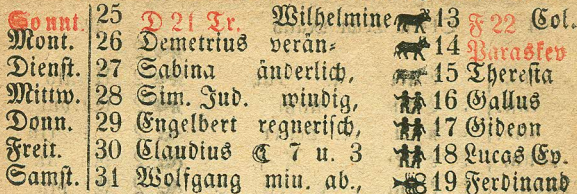 Sonnt. 25 D 21 Tr. Wilhelmine 13 F 22 Col.
Mont. 26 Demetrius verän- 14 Paraskev
Dienst. 27 Sabina änderlich, 15 Theresia
Mittw. 28 Sim. Jud. windig, 16 Gallus
Donn. 29 Engelbert regnerisch, 17 Gideon
Freit. 30 Claudius ☾ 7 u. 3 18 Lucas Ev.
Samst. 31 Wolfgang min. ab., 19 Ferdinand